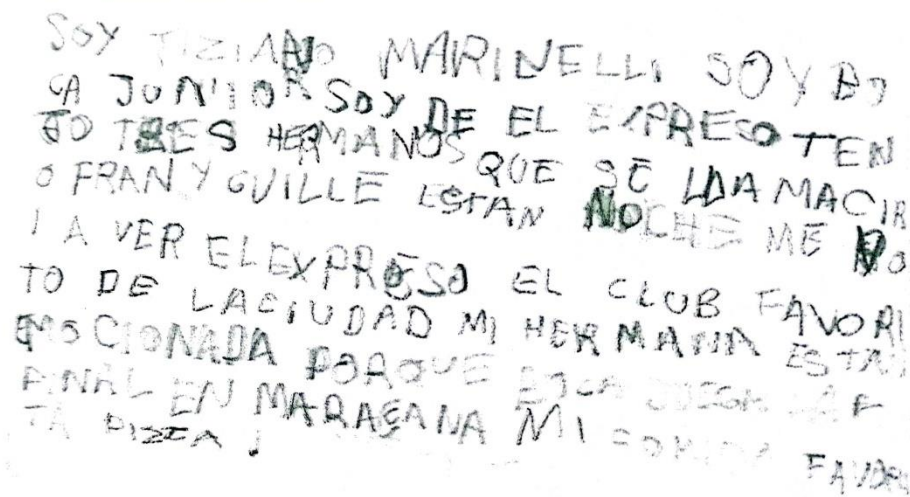 SOY TIZIANO MARINELLI SOY BO
CA JUNIOR SOY DE EL EXPRESO TEN
GO TRES HERMANOS QUE SE LLAMA CIR
O FRAN Y GUILLE ESTAN NOCHE ME VO
I A VER EL EXPRESO EL CLUB FAVORI
TO DE LA CIUDAD MI HERMANA ESTA
EMOCIONADA PORQUE BOCA JUEGA LA F
FINAL EN MARACANA MI COMIDA FAVORI
TA PIZZA